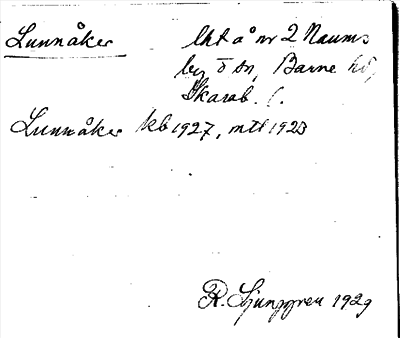 Lunnåker lht å nr 2 Naums
by Ö sn, Barne hd,
Skarab. l.
Lunnåker kb 1927, mtl 1923
R. Ljunggren 1929